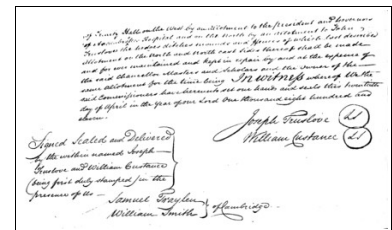 of Trinity Hall on the West by an allotment to the president and Governors
of Hospital and on the North by an allotment to John
Truslove the hedges ditches mounds and fences of which last described
Allotment on the South and North east sides thereof shall be made
and for ever maintained and kept in repair by and at the expense of
the said chancellor Masters and Scholars and the owner of the
same allotment for the time being In witness whereof We the
said Commissioners have hereunto set our hands and seals this twentieth
day of April in the year of our Lord One thousand eight hundred and
eleven.
Joseph Truslove LS
William Custance LS
Signed Sealed and Delivered
by the within named Joseph
Truslove and William Custance
(being first duly stamped) in the
presence of Us
Samuel
William Smith of Cambridge.